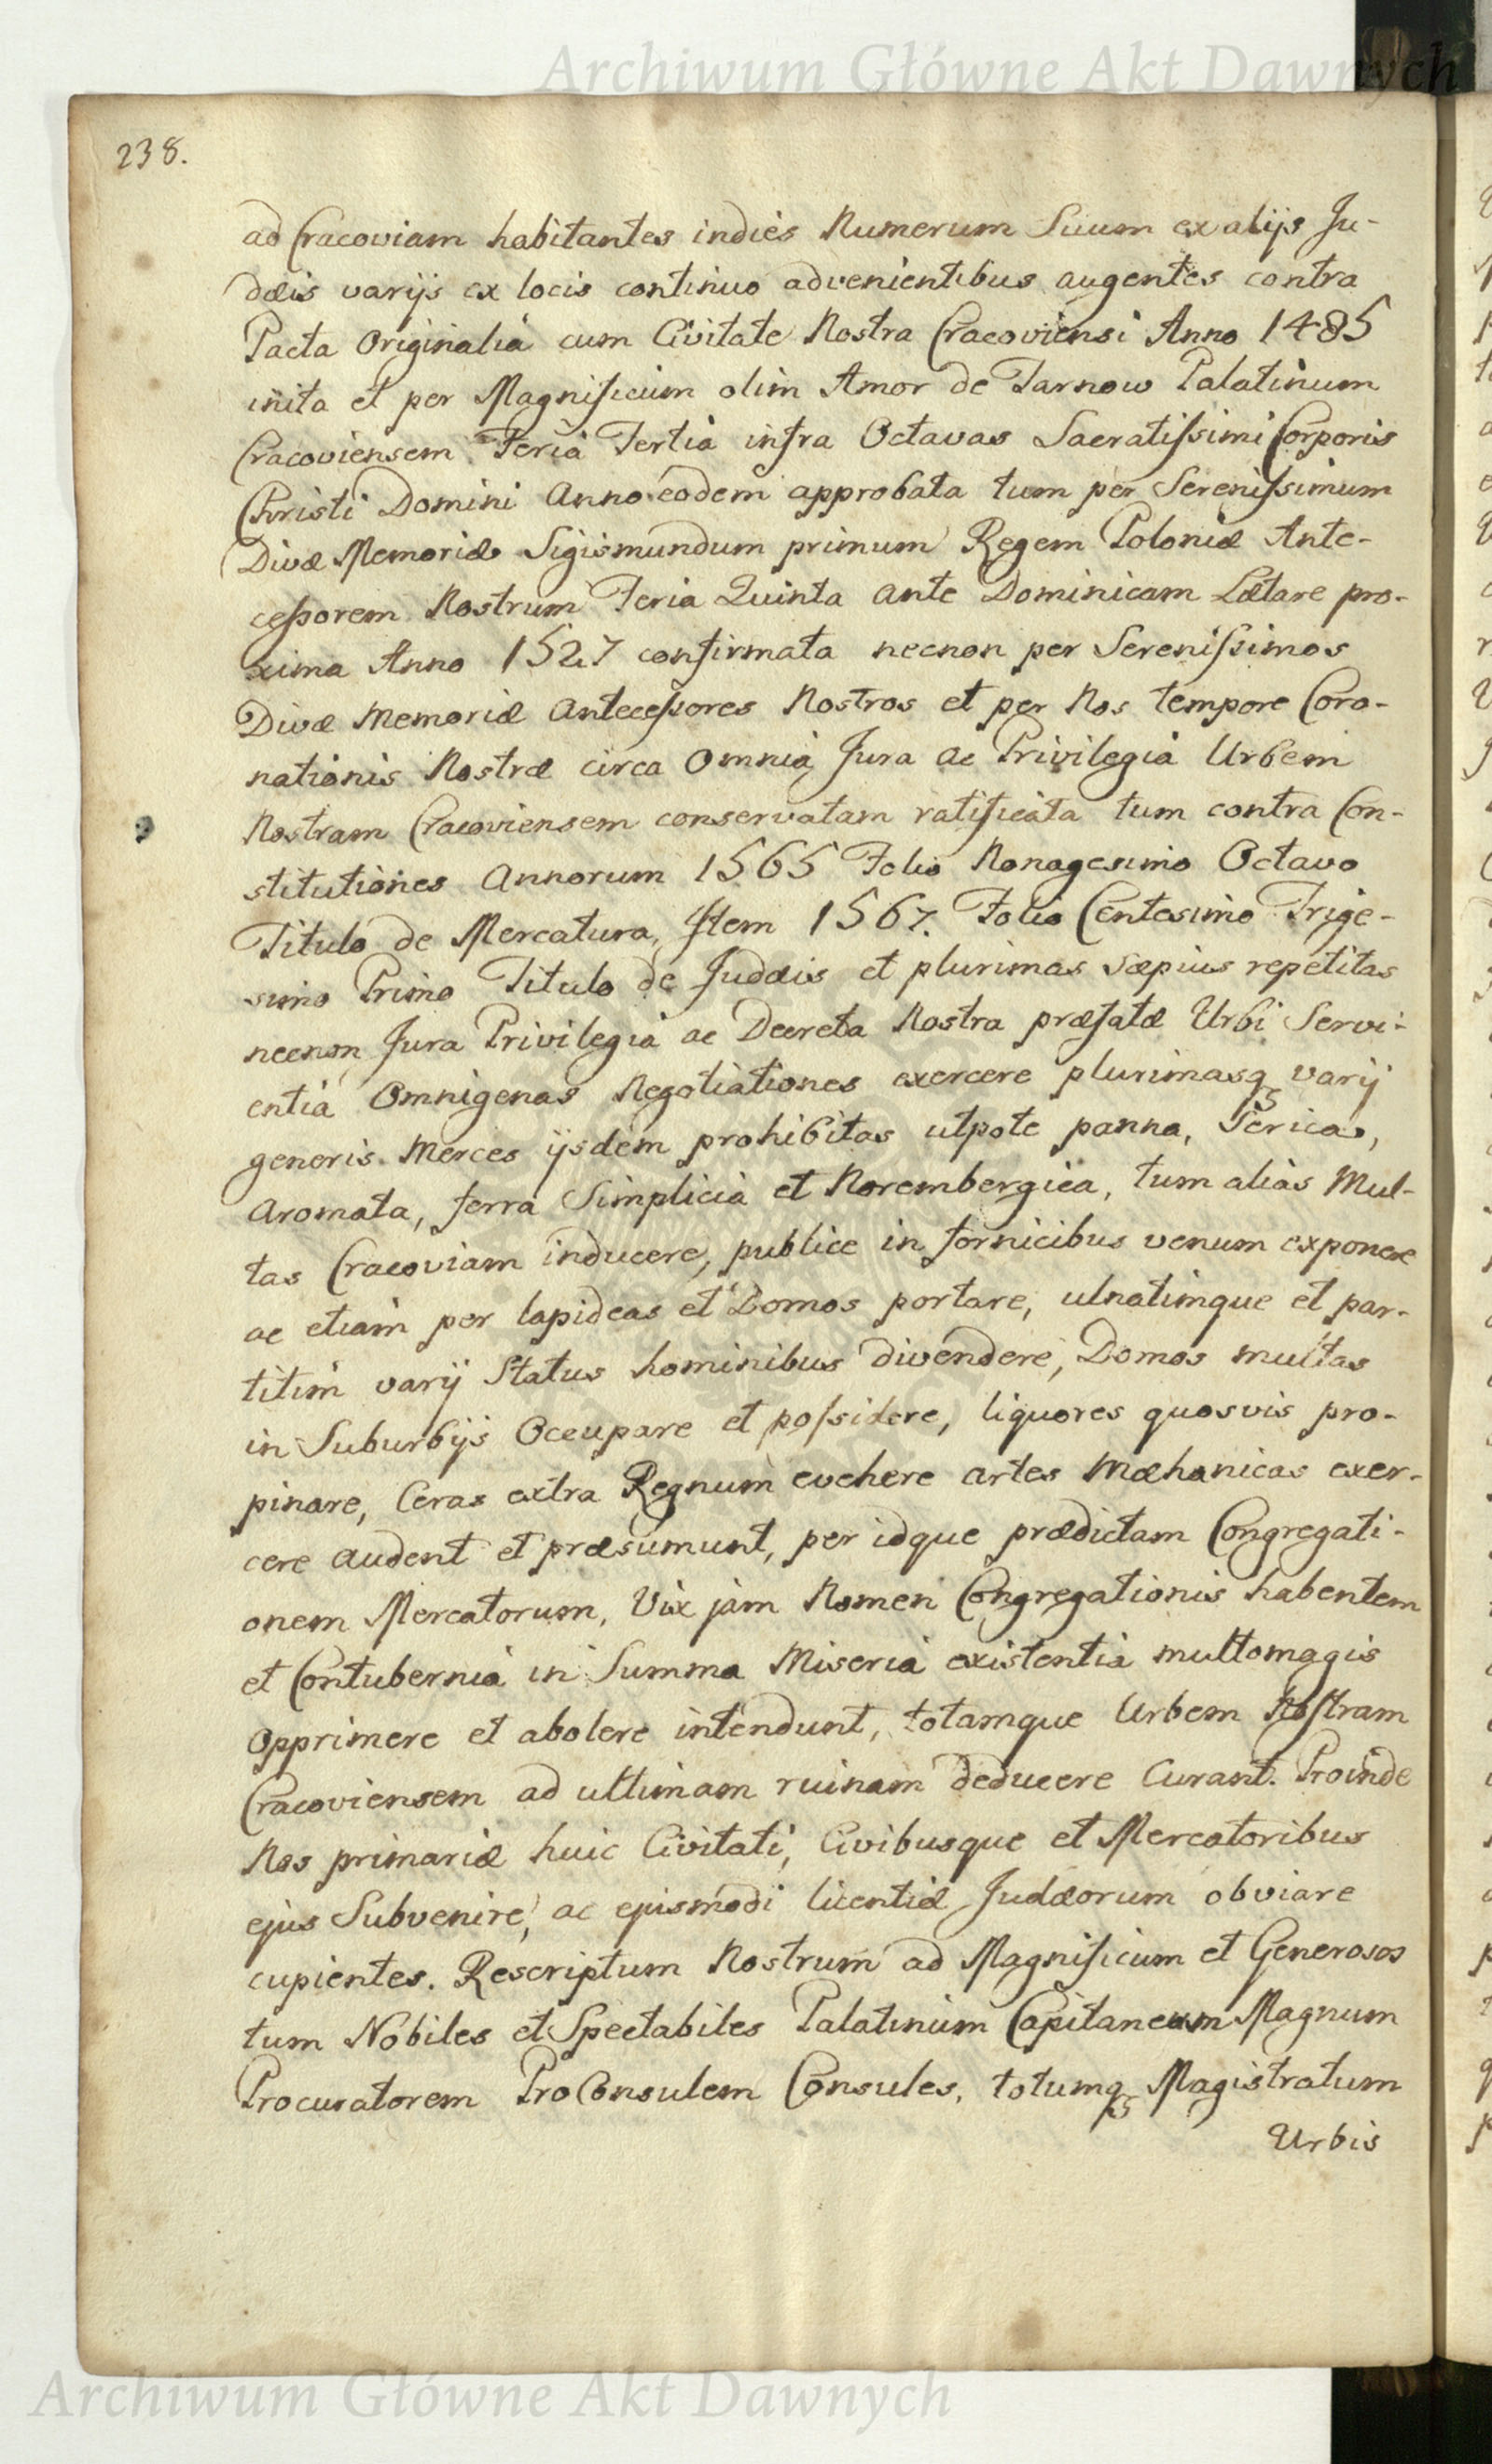 Archiwum Główne Akt Dawnych
238.
ad Cracoviam habitantes indies Numerum Suum ex alijs Ju-
dæis varijs ex locis continuo advenientibus augentes contra
Pacta Originalia cum Civitate Nostra Cracoviensi Anno 1485
inita et per Magnificum olim Amor de Tarnow Palatinum
Cracoviensem Feria Tertia infra Octavas Sacratissimi Corporis
Christi Domini Anno eodem approbata tum per Serenissimum
Divæ Memoriæ Sigismundum primum Regem Poloniæ Ante-
cessorem Nostrum Feria Quinta ante Dominicam Lætare pro-
xima Anno 1527 confirmata necnon per Serenissimos
Divæ Memoriæ Antecessores Nostros et per Nos tempore Coro-
nationis Nostræ circa Omnia Jura ac Privilegia Urbem
Nostram Cracoviensem conservatam ratificata tum contra Con-
stitutiones Annorum 1565 Folio Nonagesimo Octavo
Titulo de Mercatura, Item 1567. Folio Centesimo Trige-
simo Primo Titulo de Judæis et plurimas sæpius repetitas
necnon Jura Privilegia ac Decreta Nostra præfatæ Urbi Servi-
entia Omnigenas Negotiationes exercere plurimasq varij
generis Merces ijsdem prohibitas utpote panna, Serica,
Aromata, ferra Simplicia et Norembergica, tum alias Mul-
tas Cracoviam inducere, publice in fornicibus venum exponere
ac etiam per lapideas et Domos portare, ulnatimque et par-
titim varij Status hominibus divendere, Domos multas
in Suburbijs Occupare et possidere, liquores quosvis pro-
pinare, Ceras extra Regnum evehere artes Mæhanicas exer-
cere audent et præsumunt, per idque prædictam Congregati-
onem Mercatorum, Vix jam Nomen Congregationis habentem
et Contubernia in Summa Miseria existentia multomagis
Opprimere et abolere intendunt, totamque Urbem Nostram
Cracoviensem ad ultimam ruinam deducere Curant. Proinde
Nos primariæ huic Civitati, Civibusque et Mercatoribus
ejus Subvenire, ac ejusmodi licentiæ Judæorum obviare
cupientes. Rescriptum Nostrum ad Magnificum et Generosos
tum Nobiles et Spectabiles Palatinum Capitaneum Magnum
Procuratorem ProConsulem Consules, totumq Magistratum
Urbis
Archiwum Główne Akt Dawnych